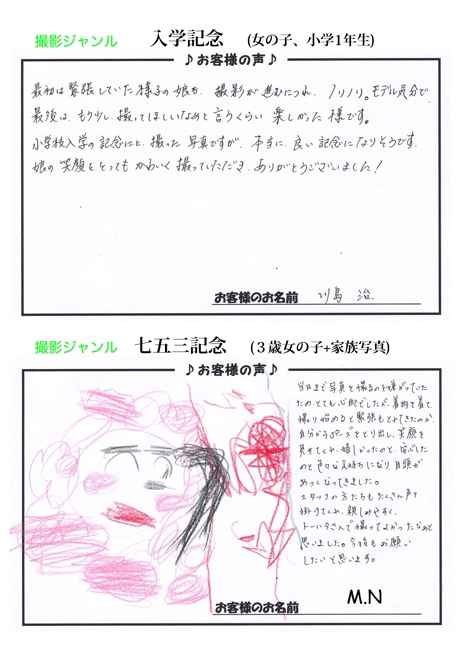 撮影ジャンル 入学記念 (女の子、小学1年生)
♪お客様の声♪
最初は緊張していた様子の娘も、撮影が進むにつれ、ノリノリ。モデル気分で、
最後は、もう少し撮ってほしいなぁと言うくらい楽しかった様です。
小学校入学の記念にと、撮った写真ですが、本当に、良い記念になりそうです。
娘の笑顔をとってもかわいく撮っていただき、ありがとうございました!
お客様のお名前 川島 治
撮影ジャンル 七五三記念 (3歳女の子+家族写真)
♪お客様の声♪
当日まで写真を撮るのを嫌がっていた
ため、とても心配でしたが、着物を着て
撮り始めると緊張もとれてきたのか、
自分からポーズをとり出し、笑顔を
見せてくれ、嬉しかったのと、安心した
のと色々な気持ちになり目頭が
あつくなってきました。
スタッフの方たちもたくさん声を
掛けてくれ、親しみやすく、
さんで撮ってよかったなぁと
思いました。今後もお願い
したいと思います。
お客様のお名前 M.N